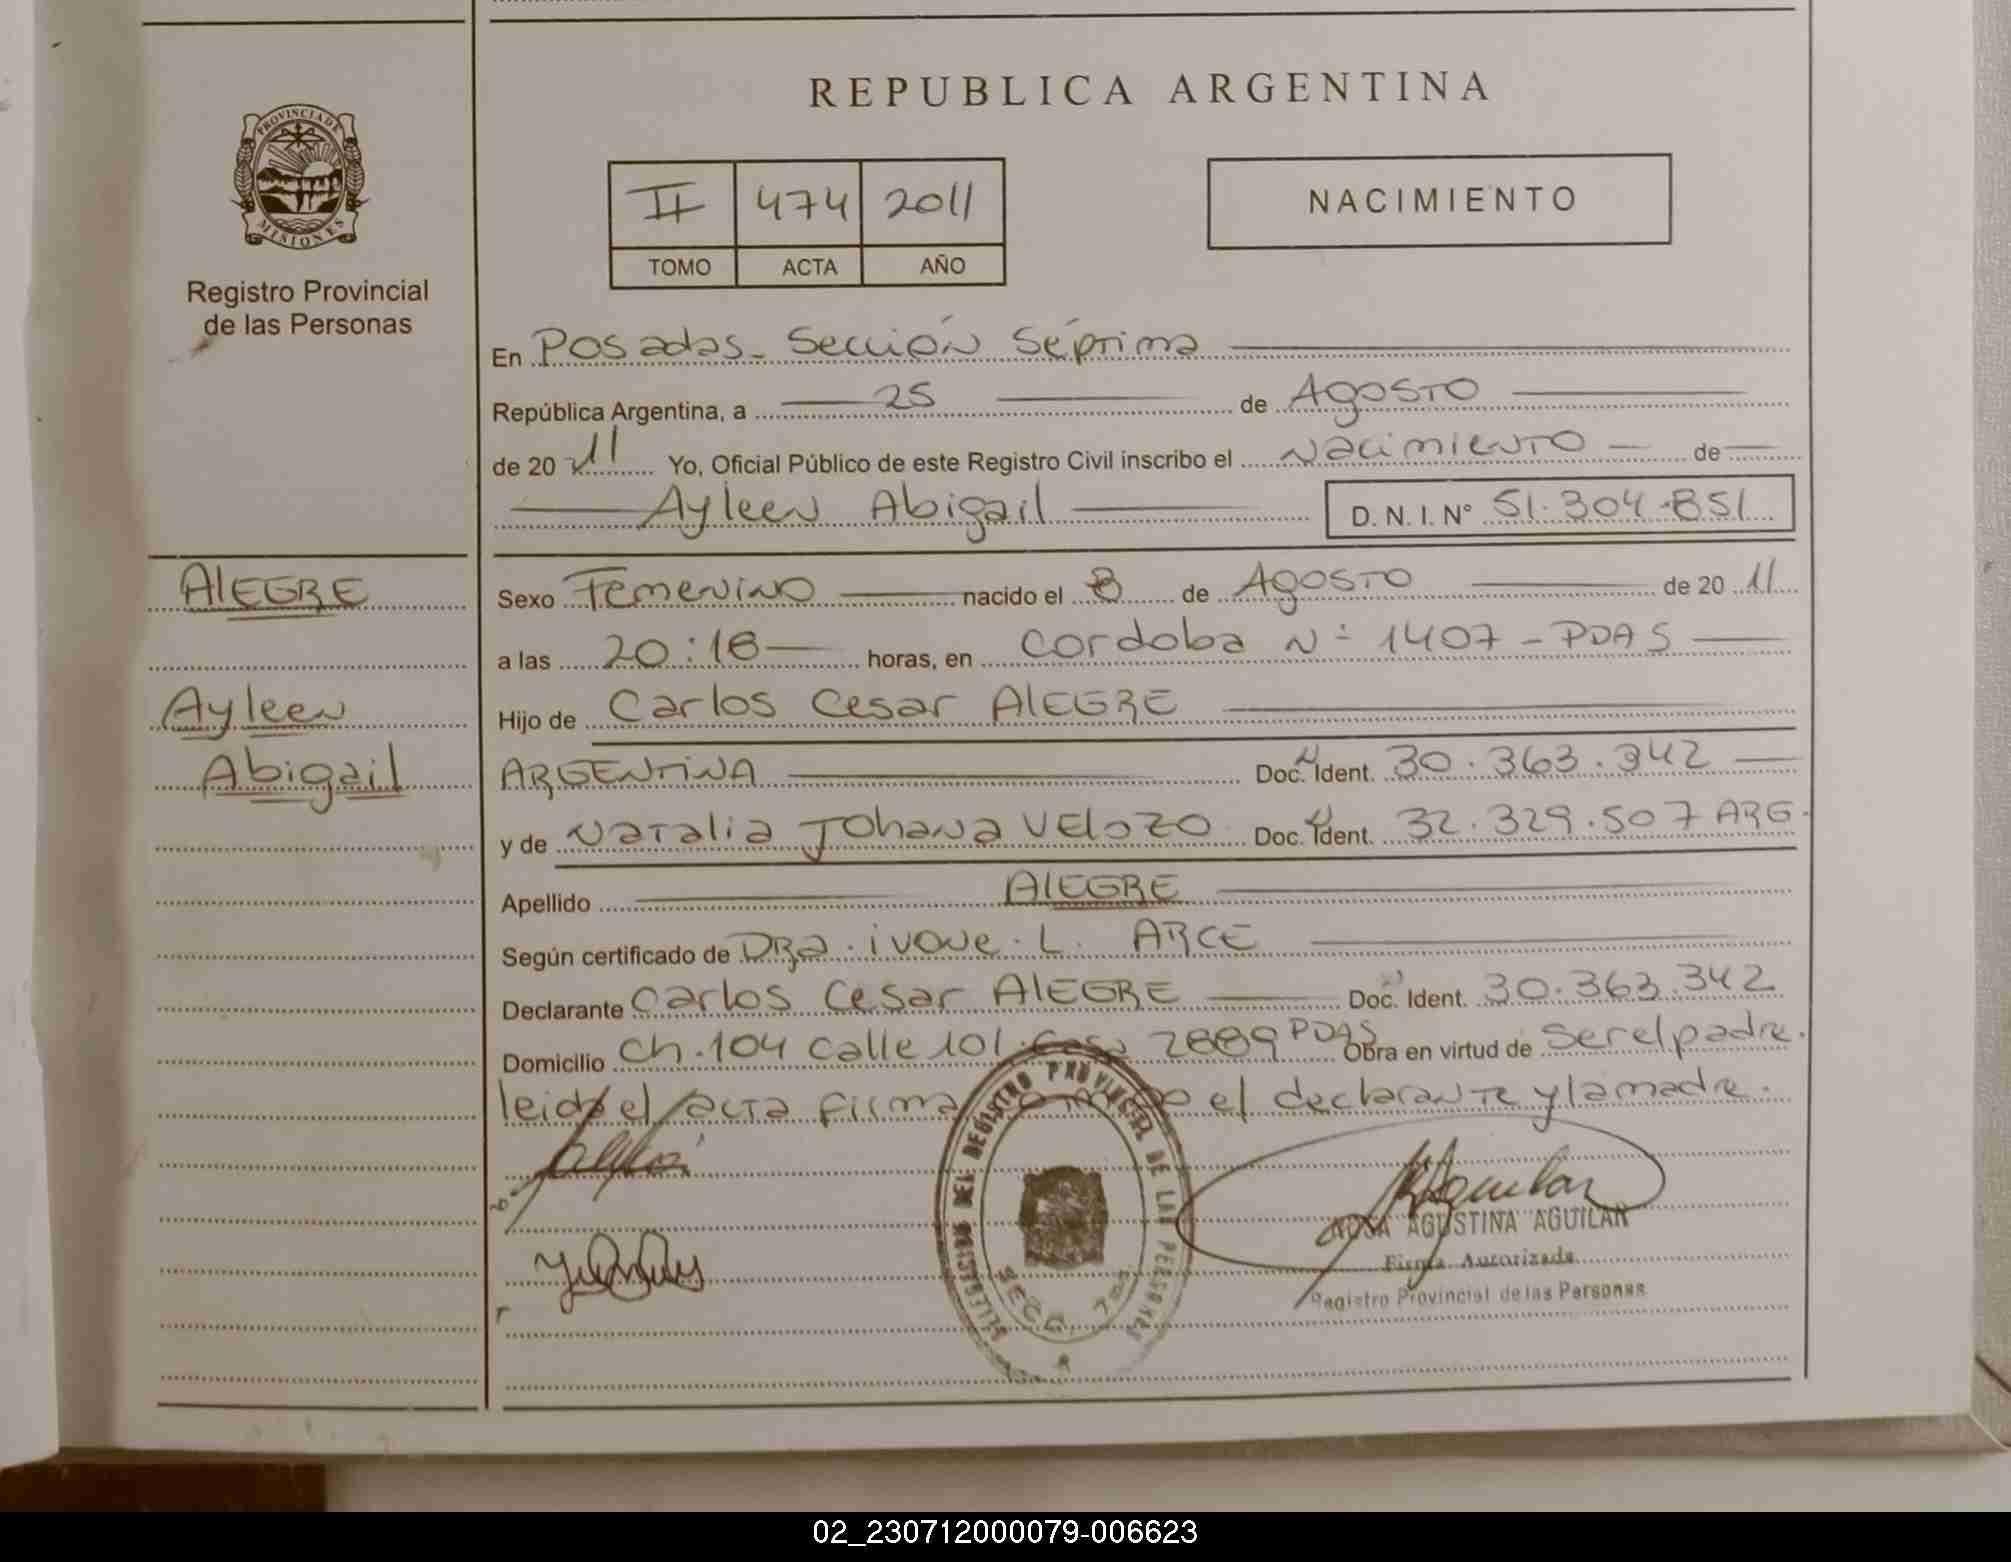 REPUBLICA ARGENTINA
PROVINCIA DE
MISIONES
Registro Provincial
de las Personas
II 474 2011
TOMO ACTA AÑO
NACIMIENTO
En Posadas - Sección Séptima
República Argentina, a 25 de Agosto
de 20 11 Yo, Oficial Público de este Registro Civil inscribo el Nacimiento de
Ayleen Abigail D. N. I. N° 51.304.851
ALEGRE
Ayleen
Abigail
Sexo Femenino nacido el 8 de Agosto de 20 11
a las 20:18 horas, en Cordoba N° 1407 - PDAS
Hijo de Carlos Cesar ALEGRE
ARGENTINA Doc. Ident. 30.363.342
y de Natalia Johana VELOZO Doc. Ident. 32.329.507 ARG.
Apellido ALEGRE
Según certificado de DRa. ivone. L. ARCE
Declarante Carlos Cesar ALEGRE Doc. Ident. 30.363.342
Domicilio Ch. 104 calle 101 casa 2889 PDAS Obra en virtud de ser el padre.
leida el acta firma el declarante y la madre.
REGISTRO PROVINCIAL DE LAS PERSONAS
SECC. 7
ROSA AGUSTINA AGUILAR
Firma Autorizada
Registro Provincial de las Personas
02_230712000079-006623